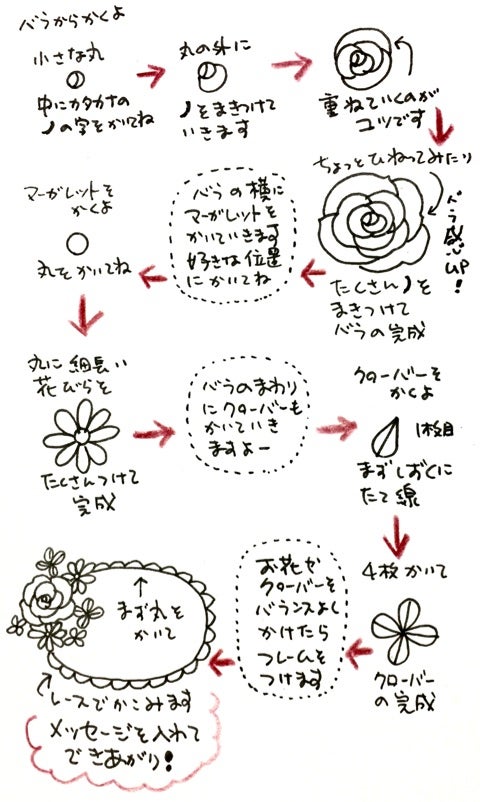 バラからかくよ
小さな丸
中にカタカナの
ノの字をかいてね
丸の外に
ノをまきつけて
いきます
重ねていくのが
コツです
ちょっとひねってみたり
バラ感UP!
たくさんノを
まきつけて
バラの完成
バラの横に
マーガレットを
かいていきます
好きな位置
にかいてね
マーガレットを
かくよ
丸をかいてね
丸に細長い
花びらを
たくさんつけて
完成
バラのまわり
にクローバーも
かいていき
ますよー
クローバーを
かくよ
1枚目
まずしずくに
たて線
4枚かいて
クローバー
の完成
お花と
クローバーを
バランスよく
かけたら
フレームを
つけます
まず丸を
かいて
レースでかこみます
メッセージを入れて
できあがり!